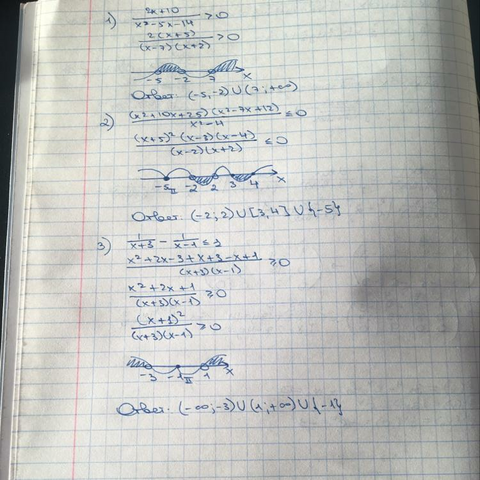 1) (2x+10)/(x²-5x-14) > 0
2(x+5)/((x-7)(x+2)) > 0
-5 -2 7 x
Ответ: (-5,-2)∪(7;+∞)
2) (x²+10x+25)(x²-7x+12)/(x²-4) ≤ 0
(x+5)²(x-3)(x-4)/((x-2)(x+2)) ≤ 0
-5 II -2 2 3 4 x
Ответ: (-2,2)∪[3,4]∪{-5}
3) 1/(x+3) - 1/(x-1) ≤ 1
(x²+2x-3+x+3-x+1)/((x+3)(x-1)) ≥ 0
(x²+2x+1)/((x+3)(x-1)) ≥ 0
(x+1)²/((x+3)(x-1)) ≥ 0
-3 -1 II 1 x
Ответ: (-∞;-3)∪(1;+∞)∪{-1}